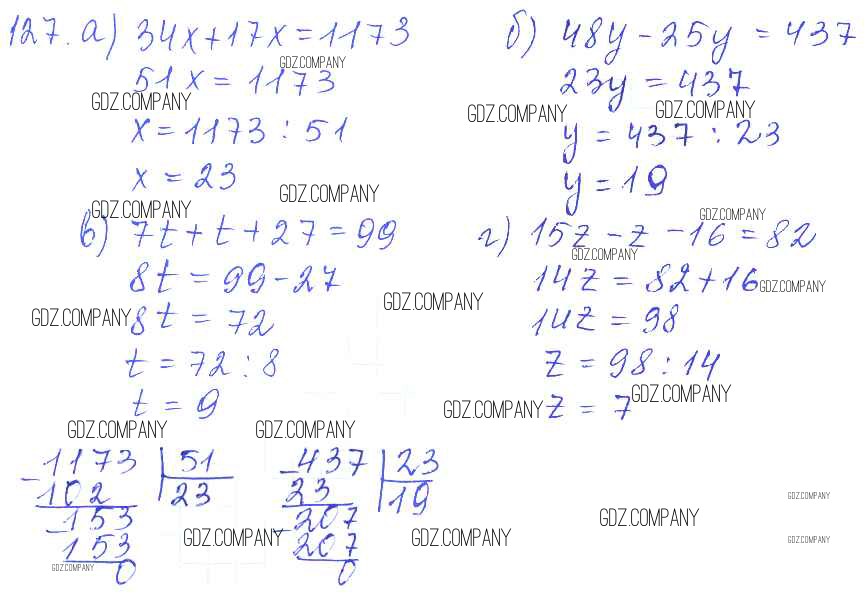 127. а) 34x+17x=1173
GDZ.COMPANY
51x=1173
GDZ.COMPANY
x=1173:51
x=23
GDZ.COMPANY
б) 48y-25y=437
23y=437
GDZ.COMPANY
GDZ.COMPANY
y=437:23
y=19
GDZ.COMPANY
в) 7t+t+27=99
8t=99-27
GDZ.COMPANY
GDZ.COMPANY
8t=72
t=72:8
t=9
GDZ.COMPANY
GDZ.COMPANY
GDZ.COMPANY
г) 15z-z-16=82
GDZ.COMPANY
14z=82+16
GDZ.COMPANY
14z=98
z=98:14
GDZ.COMPANY
GDZ.COMPANY
z=7
-1173 | 51
102 | 23
-153
153
GDZ.COMPANY
0
-437 | 23
23 | 19
-207
207
0
GDZ.COMPANY
GDZ.COMPANY
GDZ.COMPANY
GDZ.COMPANY
GDZ.COMPANY